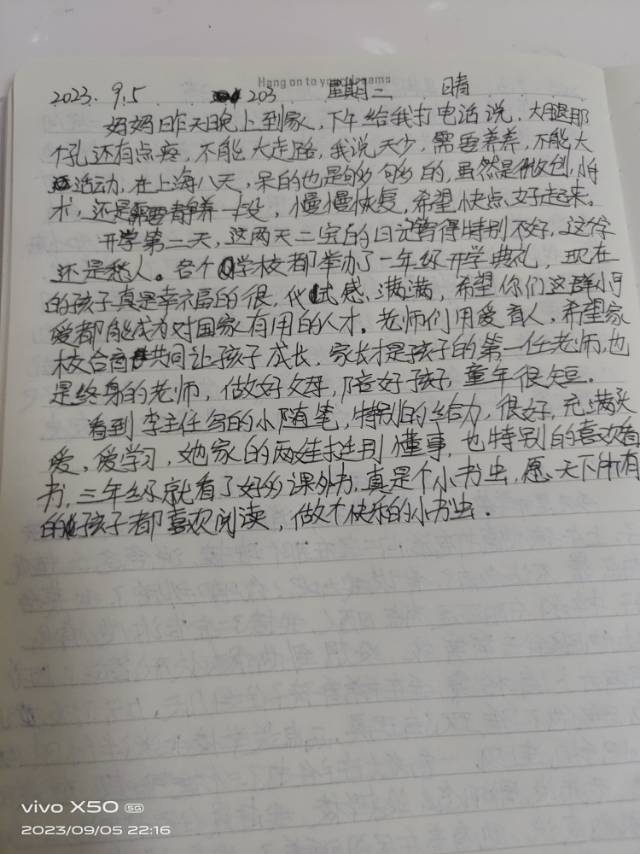 Hang on to your dreams
2023. 9.5 203 星期二 晴
妈妈昨天晚上到家,下午给我打电话说,大腿那
个孔还有点疼,不能大走路,我说天少,需要养养,不能大
活动,在上海八天,呆的也是够够的,虽然是微创小手
术,还是需要静养一段,慢慢恢复,希望快点好起来。
开学第二天,这两天二宝的日记写得特别不好,这字
还是愁人。各个学校都举办了一年级开学典礼,现在
的孩子真是幸福的很,仪式感满满,希望你们这群小可
爱都能成为对国家有用的人才。老师们用爱育人,希望家
校合育共同让孩子成长,家长才是孩子的第一任老师,也
是终身的老师,做好父母,陪好孩子,童年很短。
看到李主任写的小随笔,特别的给力,很好,充满关
爱,爱学习,她家的两娃特别懂事,也特别的喜欢看
书,三年级就看了好多课外书,真是个小书虫,愿天下所有
的好孩子都喜欢阅读,做个快乐的小书虫.
vivo X50 5G
2023/09/05 22:16